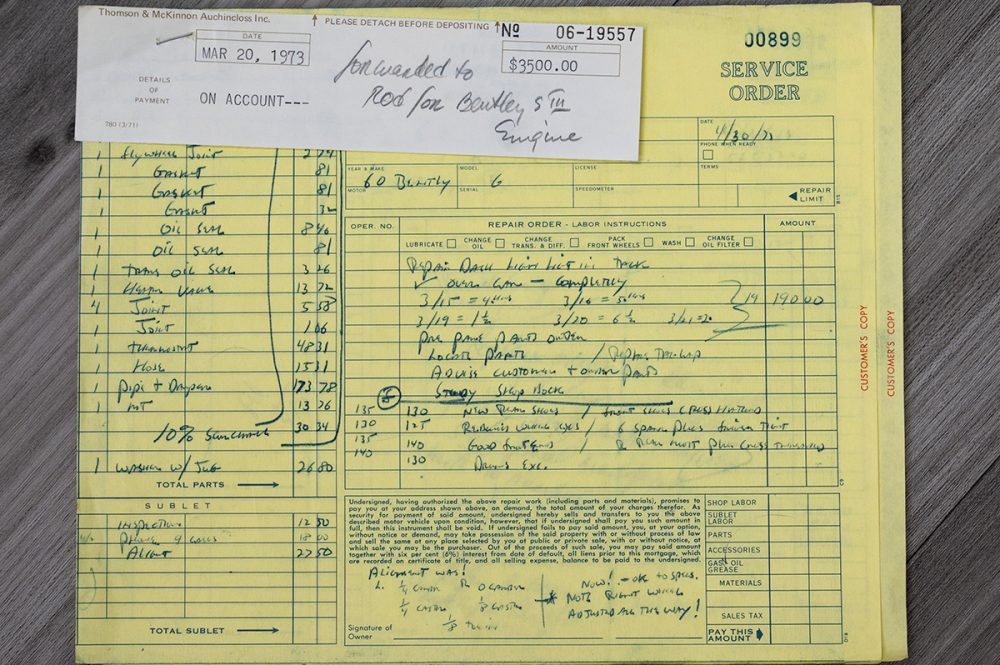 Thomson & McKinnon Auchincloss Inc.
PLEASE DETACH BEFORE DEPOSITING
No 06-19557
DATE
MAR 20, 1973
AMOUNT
$3500.00
DETAILS
OF
PAYMENT
ON ACCOUNT---
forwarded to
Rod for Bentley S III
Engine
780 (3/71)
00899
SERVICE
ORDER
DATE
4/30/73
PHONE WHEN READY
TERMS
YEAR & MAKE
60 Bently
MODEL
LICENSE
MOTOR
SERIAL
6
SPEEDOMETER
REPAIR
LIMIT
1 flywheel Joint 2 74
1 Gasket 81
1 Gasket 81
1 Gasket 32
1 Oil Seal 8 40
1 Oil Seal 81
1 Trans Oil Seal 3 26
1 13 72
4 Joint 5 58
1 Joint 1 06
1 thermostat 48 31
1 Hose 15 31
1 173 78
1 13 76
10% Surcharge 30 34
1 Washer w/ Jug 26 80
TOTAL PARTS
SUBLET
Inspection 12 50
18 00
Align 22 50
TOTAL SUBLET
OPER. NO.
REPAIR ORDER - LABOR INSTRUCTIONS
AMOUNT
LUBRICATE
CHANGE OIL
CHANGE TRANS. & DIFF.
PACK FRONT WHEELS
WASH
CHANGE OIL FILTER
Repair Dash Light
over car - completely
3/15 = 4 3/16 =
3/19 = 1 1/2 3/20 = 6 1/2 3/21 = 20
19 190.00
Locate Parts
Advise customer + order parts
Study Shop Book
135 130 New Rear Shoes /
130 125 / 6 Spark Plugs
135 140 Good
140 130
CUSTOMER'S COPY
CUSTOMER'S COPY
Undersigned, having authorized the above repair work (including parts and materials), promises to
pay you at your address shown above, on demand, the total amount of your charges therefor. As
security for payment of said amount, undersigned hereby sells and transfers to you the above
described motor vehicle upon condition, however, that if undersigned shall pay you such amount in
full, then this instrument shall be void. If undersigned fails to pay said amount, you, at your option,
without notice or demand, may take possession of the said property with or without process of law
and sell the same at any place selected by you at public or private sale, with or without notice, at
which sale you may be the purchaser. Out of the proceeds of such sale, you may pay said amount
together with six per cent (6%) interest from date of default, all liens prior to this mortgage, which
are recorded on certificate of title, and all selling expense, balance to be paid to the undersigned.
Alignment was!
L. 1/4 camber R 0 camber
1/4 caster 1/8 caster
1/8
Now! - ok to specs.
* Note Right
Adjusted all the way!
Signature of
Owner
SHOP LABOR
SUBLET
LABOR
PARTS
ACCESSORIES
GAS OIL
GREASE
MATERIALS
SALES TAX
PAY THIS
AMOUNT